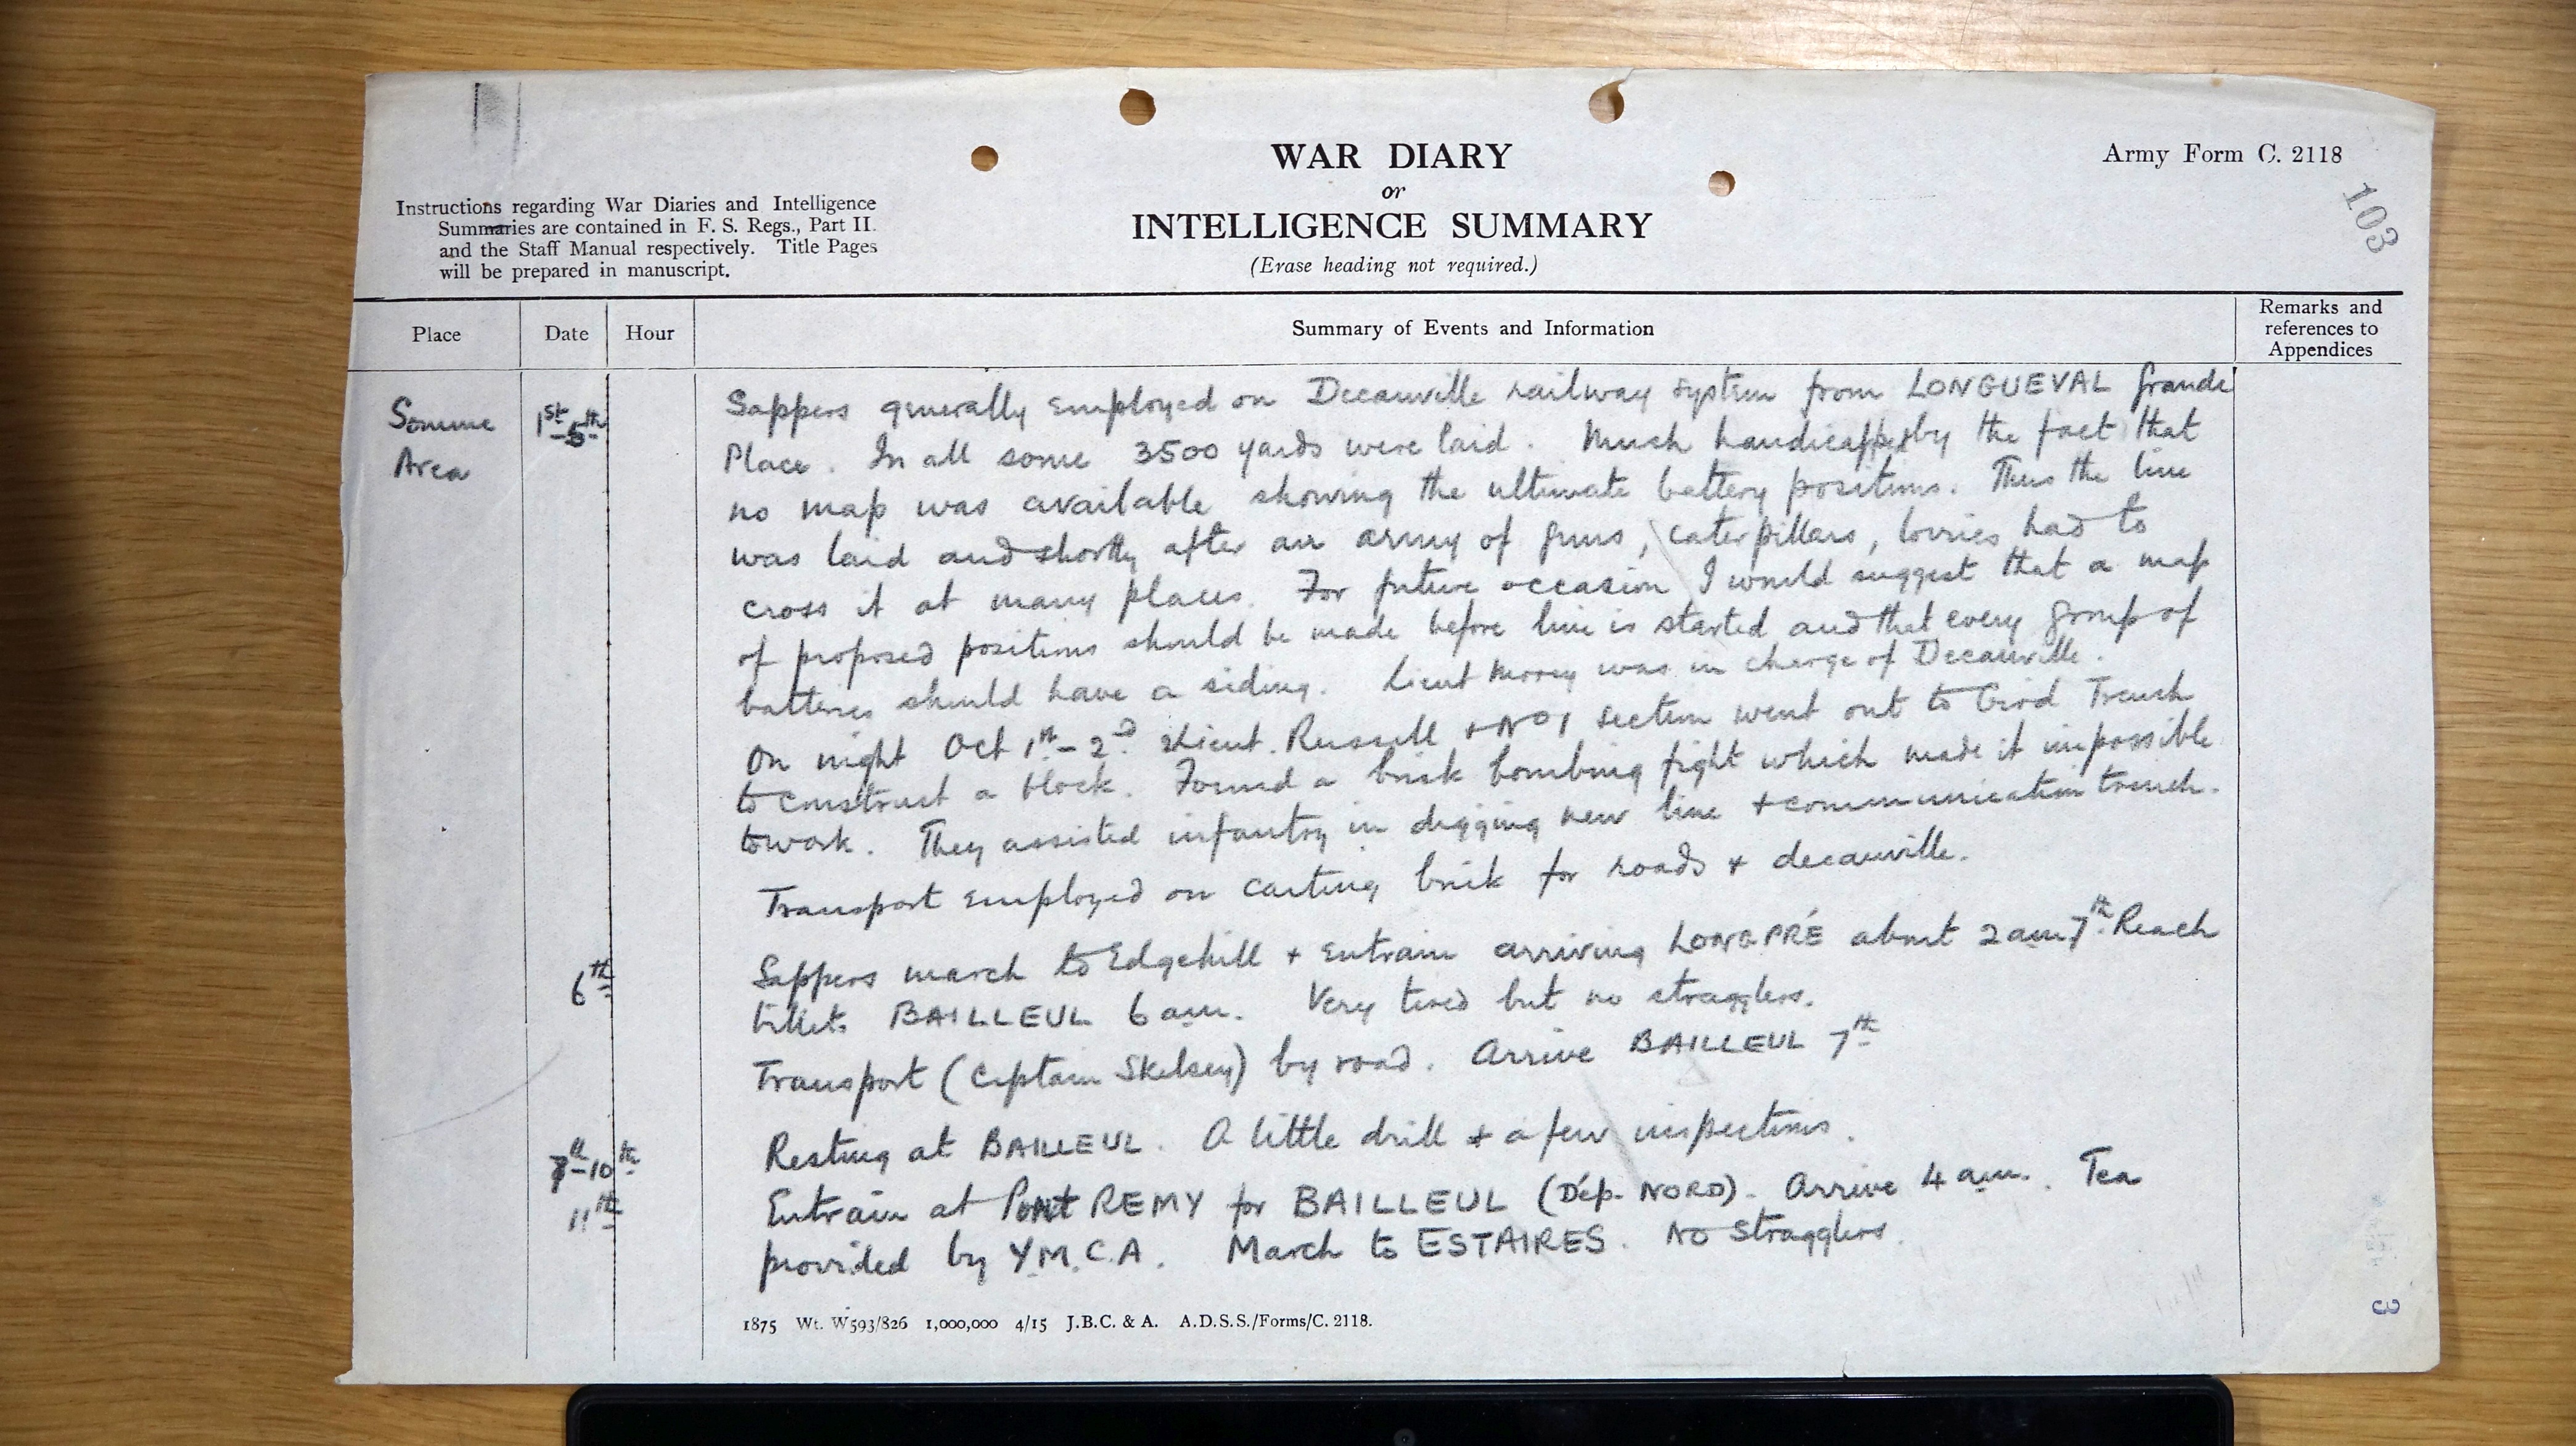 WAR DIARY
or
INTELLIGENCE SUMMARY
(Erase heading not required.)
Army Form C. 2118
103
Instructions regarding War Diaries and Intelligence
Summaries are contained in F. S. Regs., Part II.
and the Staff Manual respectively. Title Pages
will be prepared in manuscript.
Place Date Hour Summary of Events and Information Remarks and
references to
Appendices
Somme
Area
1st-5th
Sappers generally employed on Decauville railway system from LONGUEVAL Grande
Place. In all some 3500 yards were laid. Much handicapped by the fact that
no map was available showing the ultimate battery positions. Thus the line
was laid and shortly after an army of guns, caterpillars, lorries had to
cross it at many places. For future occasion I would suggest that a map
of proposed positions should be made before line is started and that every group of
batteries should have a siding. Lieut was in charge of Decauville.
On night Oct 1st-2nd Lieut. Russell + No 1 section went out to Gird Trench
to construct a block. Found a brisk bombing fight which made it impossible
to work. They assisted infantry in digging new line + communication trench.
Transport employed on carting brick for roads + decauville.
6th
Sappers march to Edgehill + Entrain arriving LONGPRÉ about 2 am 7th. Reach
billets BAILLEUL 6 am. Very tired but no stragglers.
Transport (Captain Skelsey) by road. Arrive BAILLEUL 7th
7th-10th
Resting at BAILLEUL. A little drill + a few inspections.
11th
Entrain at Pont REMY for BAILLEUL (Dép. NORD). Arrive 4 am. Tea
provided by Y.M.C.A. March to ESTAIRES. No Stragglers.
1875 Wt. W593/826 1,000,000 4/15 J.B.C. & A. A.D.S.S./Forms/C. 2118.
3